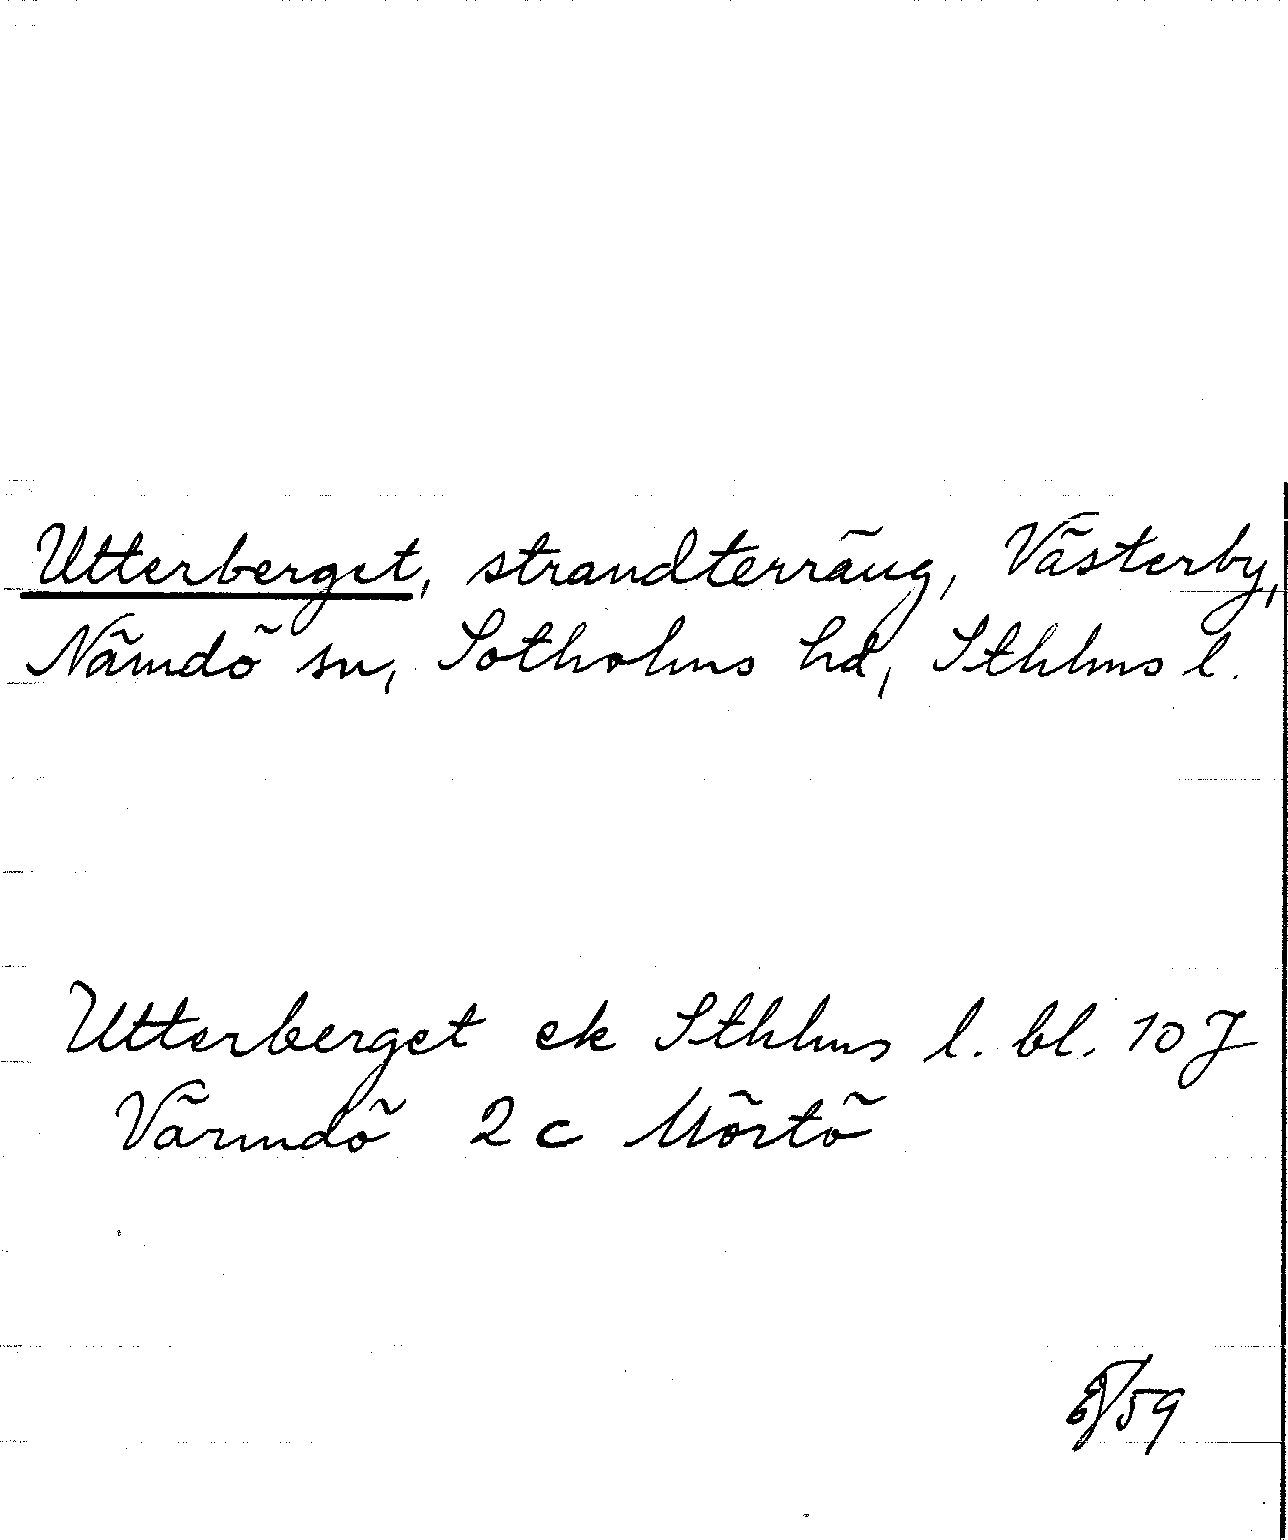 Utterberget, strandterräng, Västerby,
Nämdö sn, Sotholms hd, Sthlms l.
Utterberget ek Sthlms l. bl. 10 J
Värmdö 2 c Mörtö